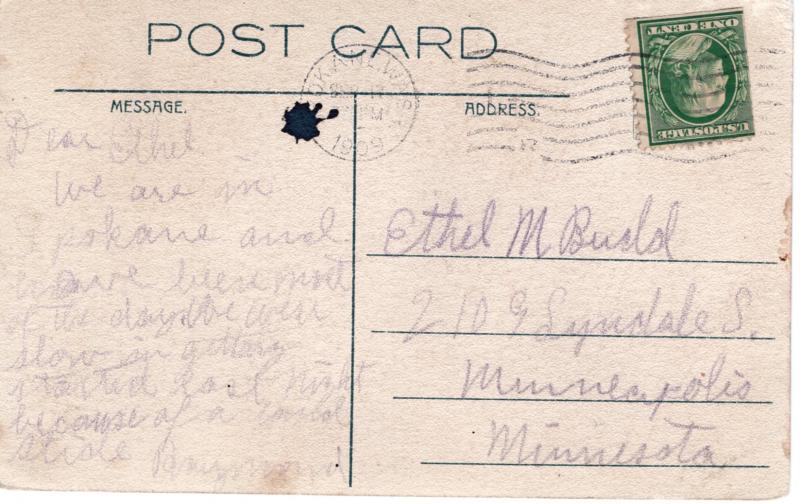 POST CARD
SPOKANE, WASH.
PM
1909
ONE CENT
U.S. POSTAGE
MESSAGE.
ADDRESS.
Dear Ethel
We are in
Spokane and
have been most
of the day. We wer
slow in getting
started last night
because of a land
slide Raymond
Ethel M Budd
Lyndale S.
Minneapolis
Minnesota